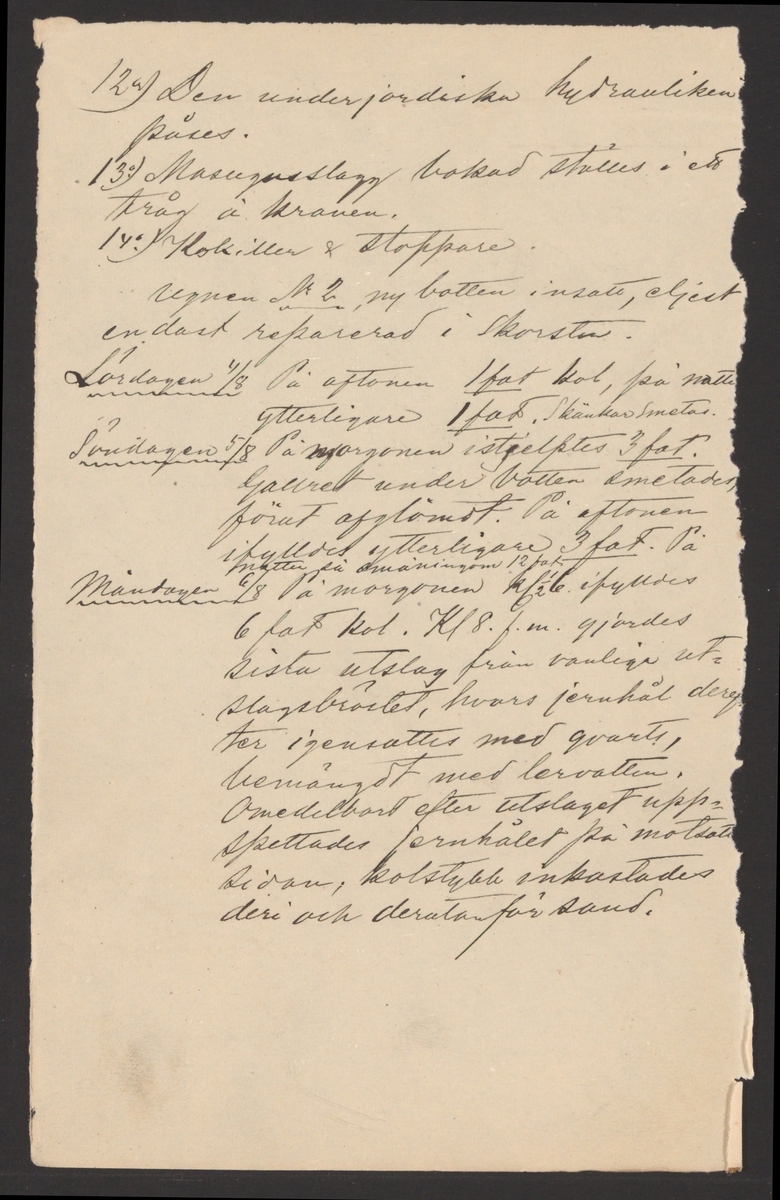 12o) Den underjordiska hydrauliken
påses.
13o) Masugnsslagg bokad ställes i ett
tråg å kranen.
14o) Kokiller & stoppare.
Ugnen No 2, ny botten insatt, eljest
endast reparerad i Skorsten.
Lördagen 4/8 På aftonen 1 fat kol, på natten
ytterligare 1 fat. Skänkar smetas.
Söndagen 5/8 På morgonen istjelptes 3 fat.
Gallret under botten smetades,
förut afglömdt. På aftonen
ifylldes ytterligare 3 fat. På
natten på omåningom 12 fat
Måndagen 6/8 På morgonen kl 1/2 6 ifylldes
6 fat kol. Kl 8. f.m. gjordes
sista utslag från vanliga ut=
slagsbröstet, hvars jernhål deref
ter igensattes med qvarts,
bemängdt med lervatten.
Omedelbart efter utslaget upp=
spettades jernhålet på motsatt
sidan; kolstybb inkastades
deri och derutanför sand.